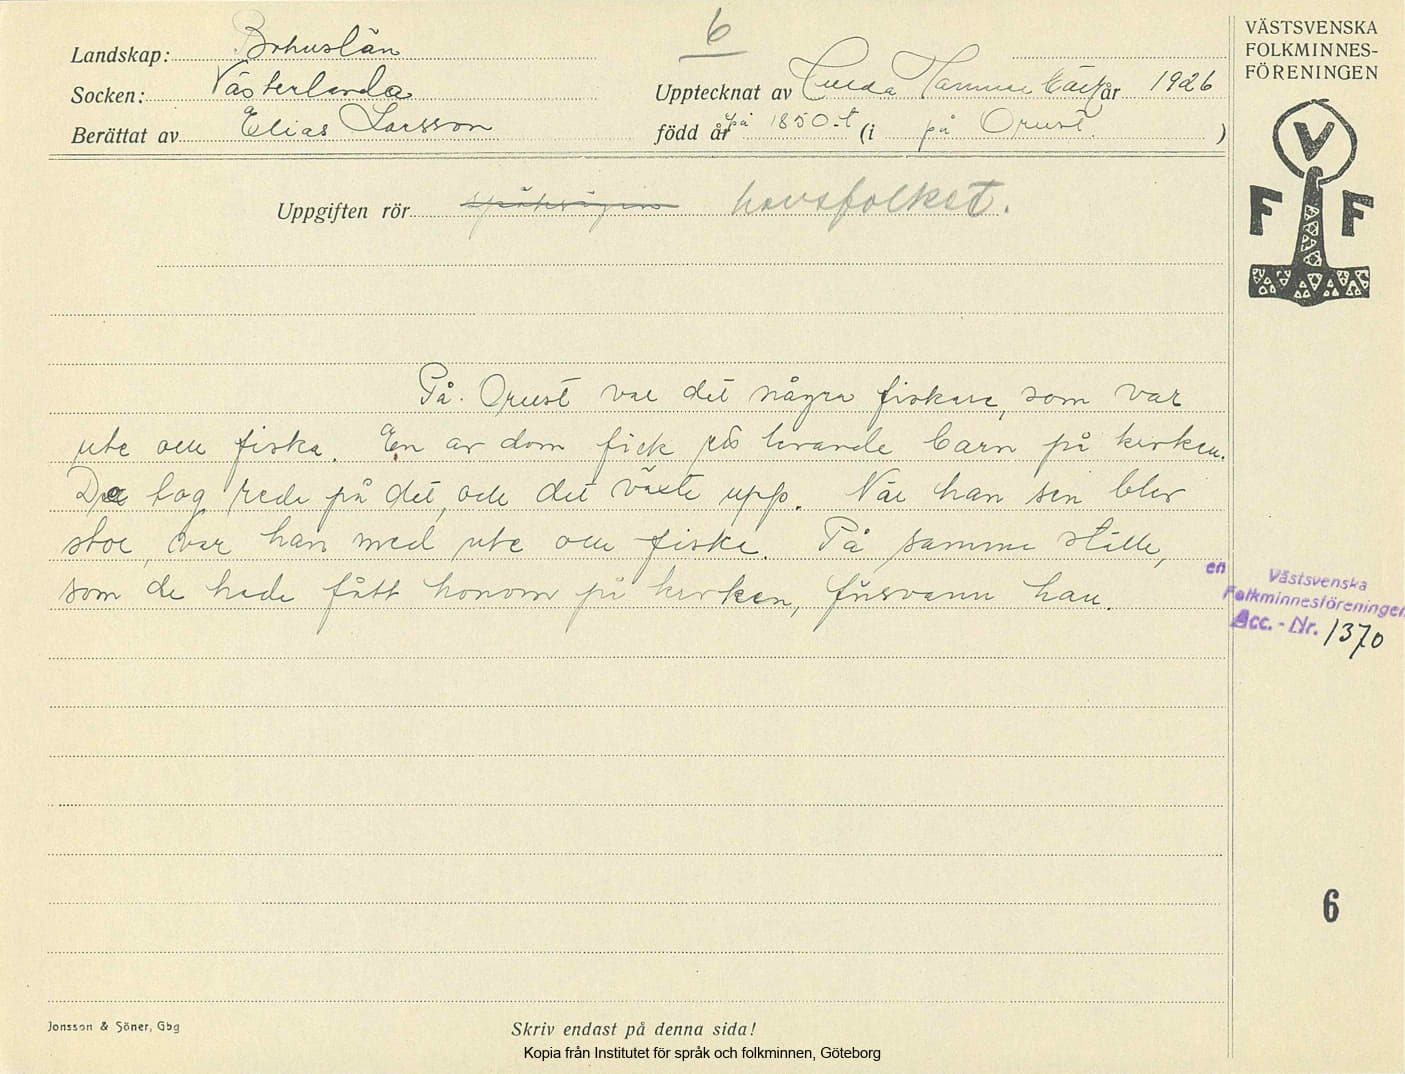 6
VÄSTSVENSKA
FOLKMINNES-
FÖRENINGEN
Landskap: Bohuslän
Socken: Västerlanda
Upptecknat av Hulda Hammarbäck år 1926
Berättat av Elias Larsson
född år på 1850-t (i på Orust. )
V
F F
Uppgiften rör havsfolket.
På Orust var det några fiskare, som var
ute ocu fiska. En av dom fick ett levande barn på kroken.
De tog rede på det, ock det växte upp. När han sen blev
stor, var han med ute ocu fiske. På samma ställe,
som de hade fått honom på kroken, försvann han.
en Västsvenska
Folkminnesföreningen
Acc.-Nr. 1370
6
Jonsson & Söner, Gbg
Skriv endast på denna sida!
Kopia från Institutet för språk och folkminnen, Göteborg